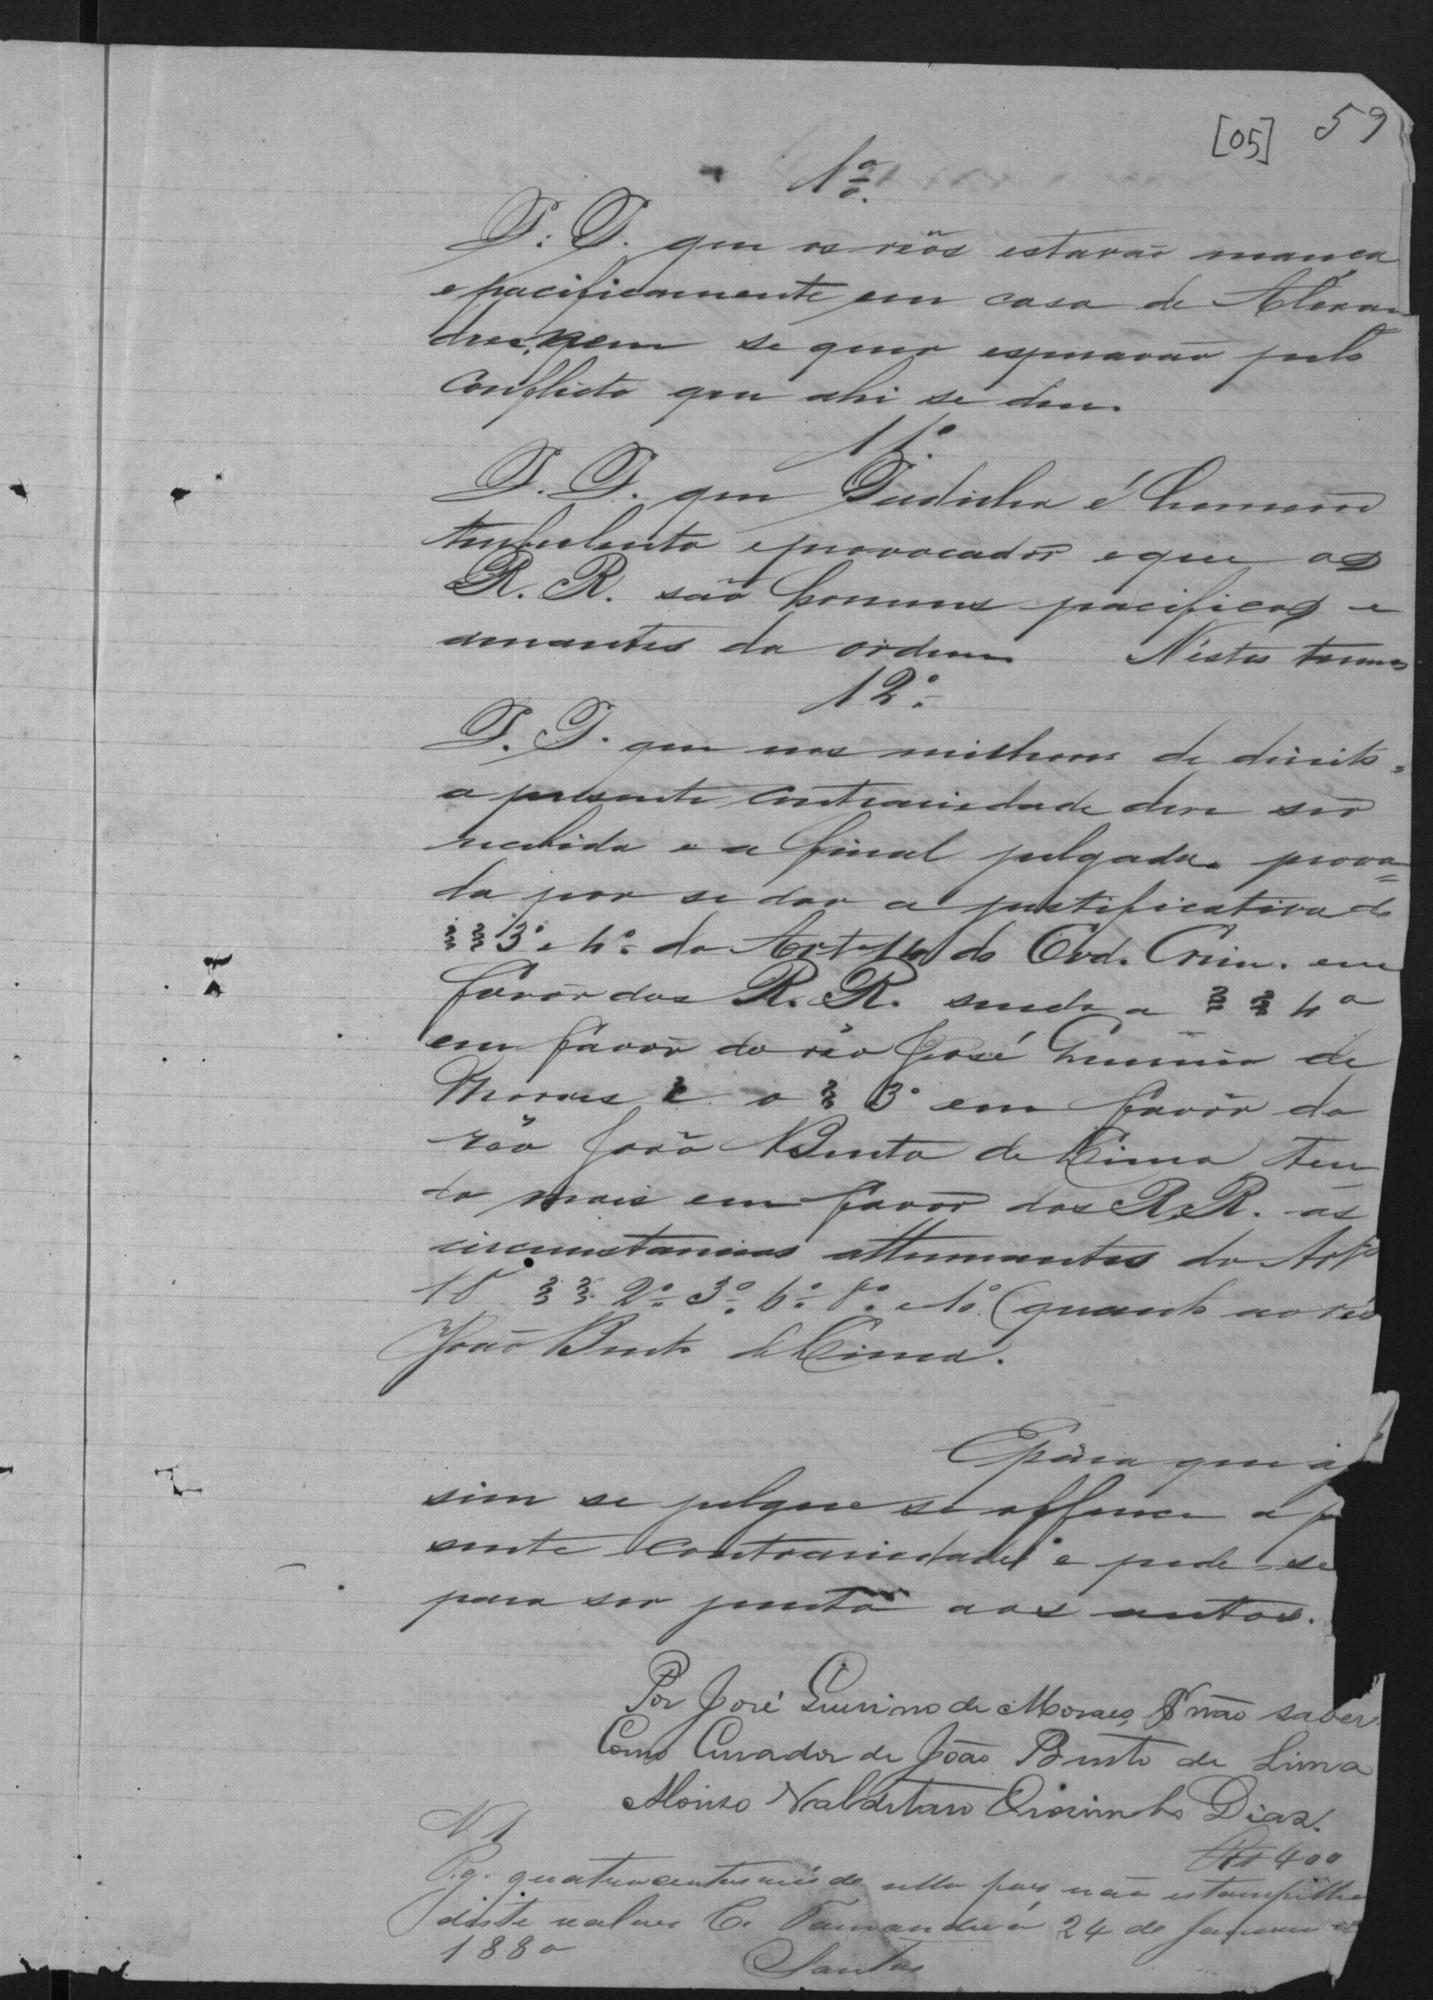 [05] 59
10.
P. P. que os réos estavão mança
e pacificamente em casa de Alexan
dre, nem se quer esperavão pelo
conflicto que ahi se deu.
11º
P. P. que é homem
turbulento e provocador e que os
R. R. são homens pacificos e
amantes da ordem Néstes termos
12º.
P. P. que nos milhores de direito
a presente contrariedade deve ser
recebida e a final julgada prova=
da por se dar a justificativa do
§§ 3º e 4º do Art 14 do Cod. Crim. em
favor dos R. R. sendo a §§ 4º
em favor do réo José de
Moraes e o § 3º em favôr do
réo João Bento de Lima ten
do mais em favor dos R. R. as
circumstancias attenuantes do Artº
18 §§ 2º. 3º. 6º. 8º. e 10 (quanto ao réo
João Bento de Lima.
E para que as
sim se julgue se offerece a p
sente contrariedade e pede-se
para ser junto aos autos.
Por José de Moraes, não saber
Como Curador de João Bento de Lima
Dias.
Rs 400
N 1
Pg. quatrocentos reis de sello por não estampilha
deste valor C. Tamanduá 24 de Janeiro de
1880
Santos